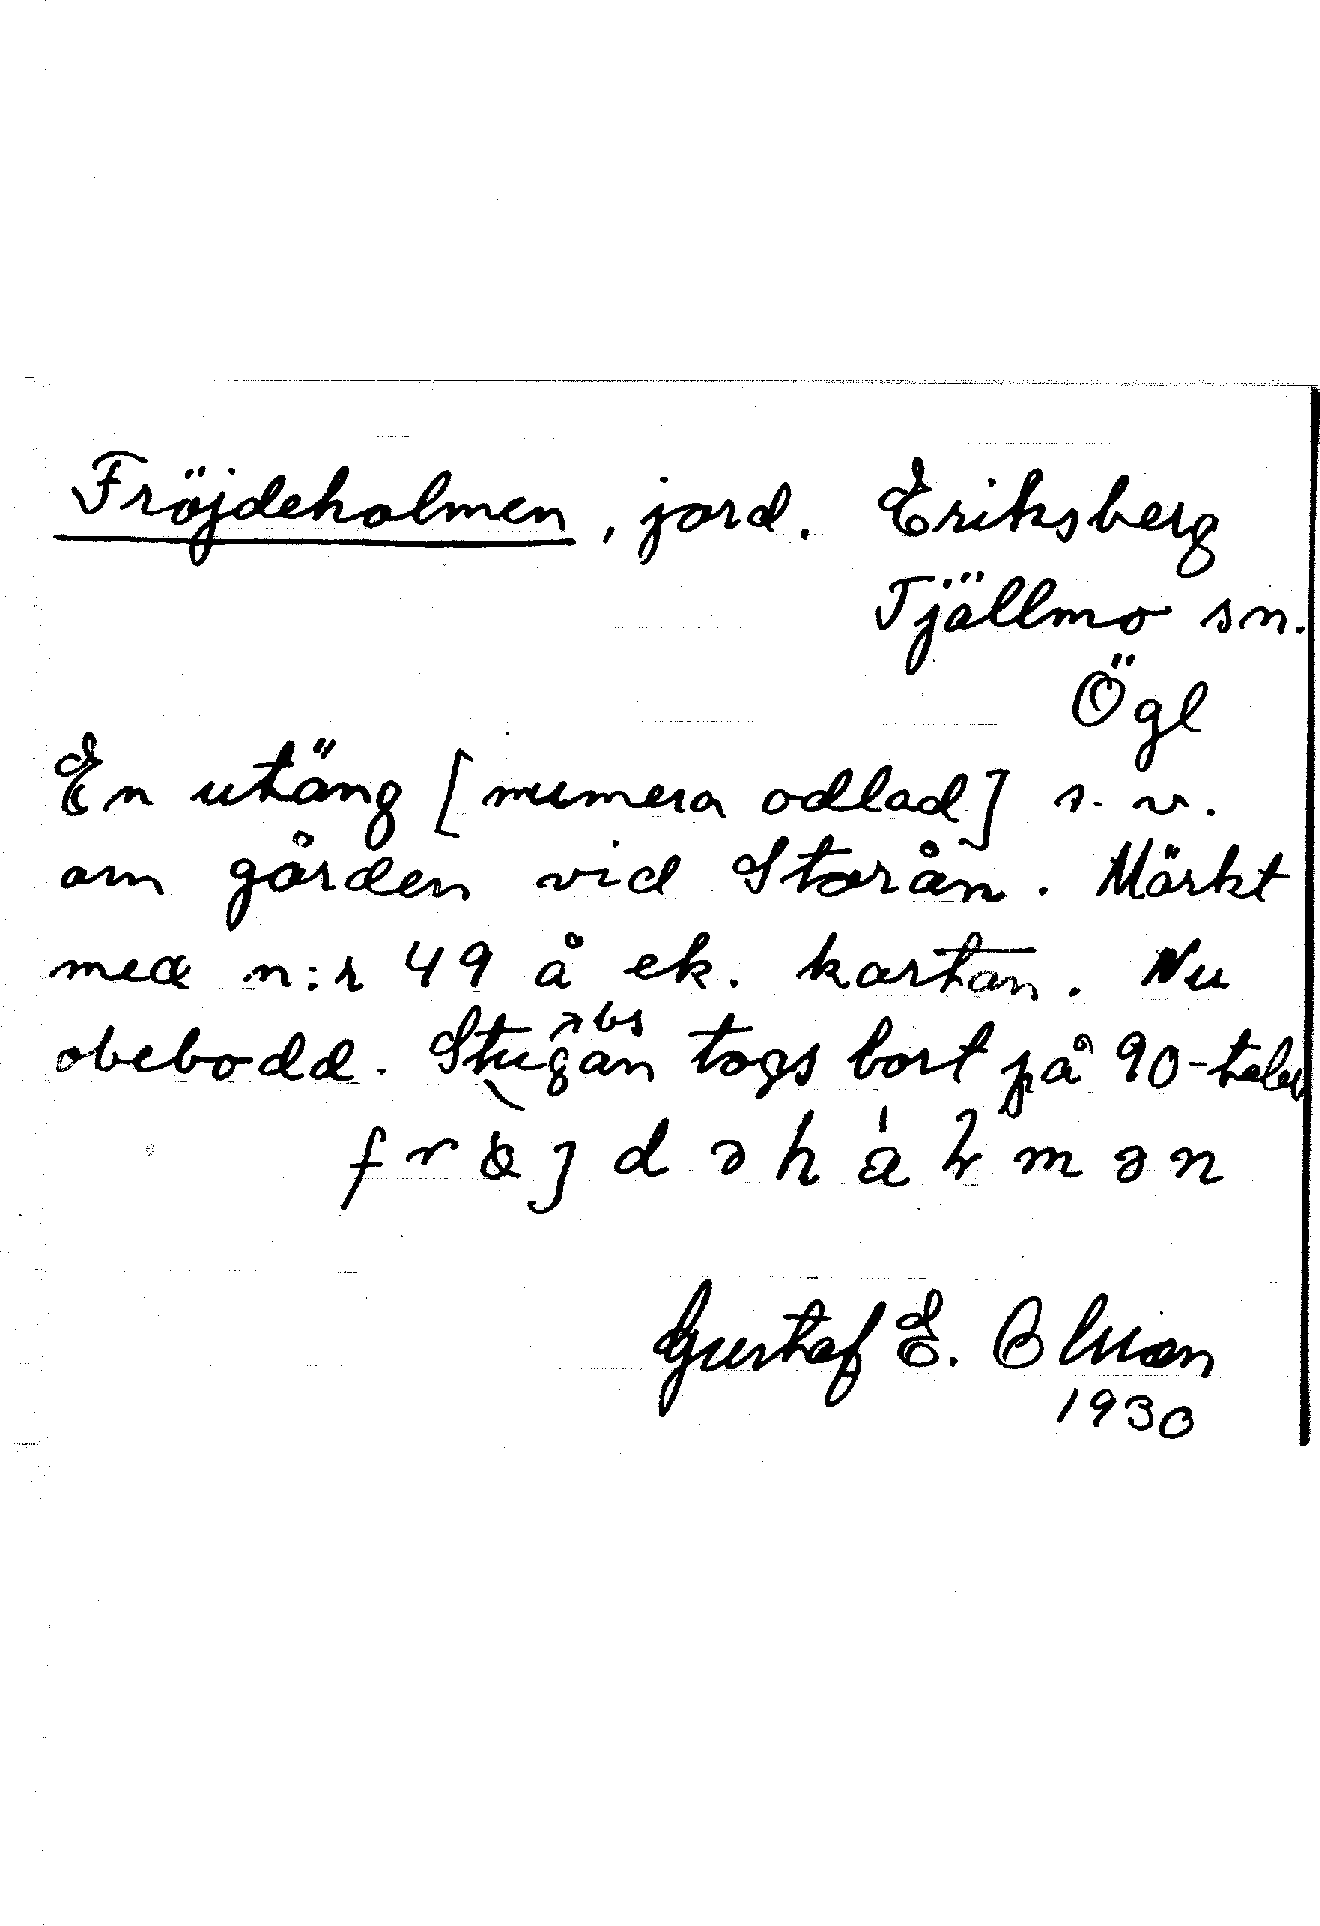 Fröjdeholmen, jord. Eriksberg
Tjällmo sn.
Ögl
En utäng [numera odlad] s. v.
om gården vid Storån. Märkt
med n:r 49 å ek. kartan. Nu
obebodd. Stugan togs bort på 90-talet
Gustaf E. Olsson
1930